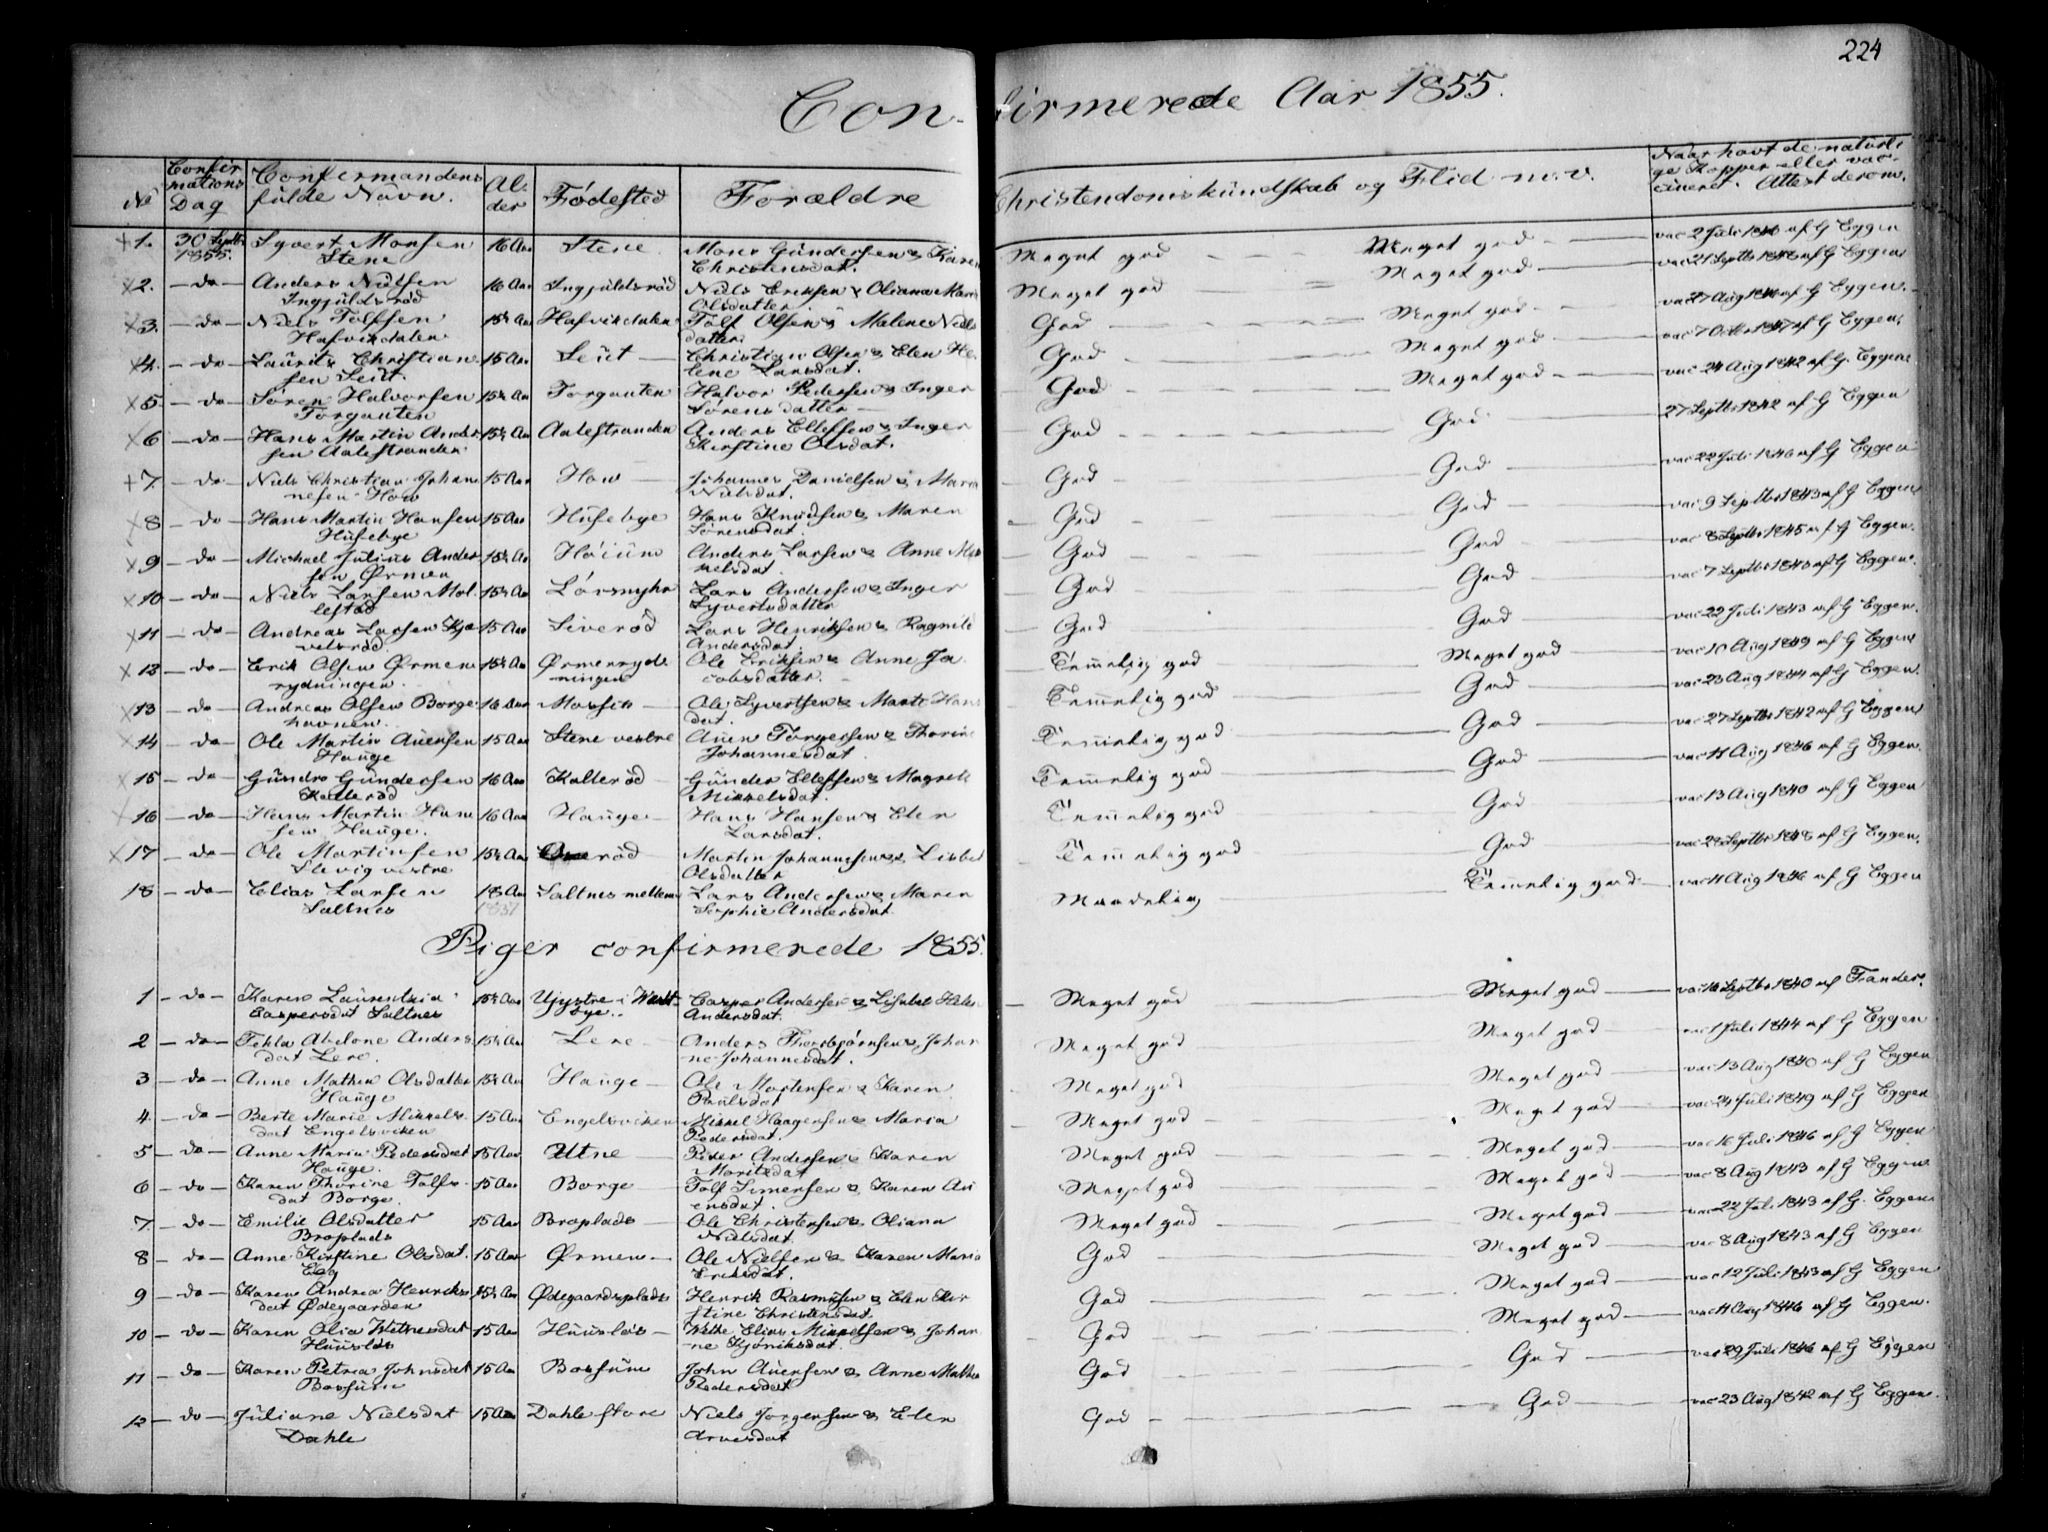 224
Confirmerede Aar 1855.
No
Confirmations Dag
Confirmandens fulde Navn.
Alder
Födested
Forældre
Christendomskundskab og Flid m.v.
Naar havt de naturlige Kopper eller vaccineret. Attest derom.
1. 30 Septb 1855. Syvert Monsen Stene 16 Aar Stene Mons Gundersen & Karen Christensdat. Meget god Meget god af G Eggen
2. do Anders Nielsen Ingjuldsröd 16 Aar Ingjuldsröd Niels Eriksen & Oliana Maria Olsdatter Meget god Meget god vac 21 Septb af G Eggen
3. do Niels Tolfsen Hafvikdalen 15½ Aar Hafvikdalen Tolf Olsen & Malene Nielsdatter God Meget god vac 27 Aug af G Eggen
4. do Laurits Christiansen Leut 15 Aar Leut Christian Olsen & Elen Helene Larsdat. God Meget god vac 7 Octb 1847 af G Eggen
5. do Sören Halvorsen Torgauten 15½ Aar Torgauten Halvor Pedersen & Inger Sörensdatter God Meget god vac 24 Aug 1842 af G. Eggen
6 do Hans Martin Andersen Aalestranden 15½ Aar Aalestranden Anders Ellefsen & Inger Kirstine Olsdat. God God 27 Septb 1842 af G Eggen
7. do Niels Christian Johannesen How 15 Aar How Johannes Danielsen & Maria Nielsdat. God God vac 22 Juli 1846 af G Eggen
8 do Hans Martin Hansen Husebye 15 Aar Husebye Hans Knudsen & Maren Sörensdat. God God vac 9 Septb 1843 af G Eggen
9 do Michael Julius Andersen Ørmen 15½ Aar Höium Anders Larsen & Anne Mikkelsdat. God God vac 8 Septb 1845 af G Eggen.
10 do Niels Larsen Mollestad 15½ Aar Lörsmyhr Lars Andersen & Inger Syvertsdatter God God vac 7 Septb 1843 af G Eggen.
11 do Andreas Larsen Kjevelsröd 15 Aar Siveröd Lars Henriksen & Ragnild Andersdat. God God vac 22 Juli 1843 af G Eggen.
12 do Erik Olsen Ørmenrydningen 15½ Aar Ørmenrydningen Ole Eriksen & Anne Jacobsdatter. Temmelig god Meget god vac 10 Aug 1849 af G Eggen
13 do Andreas Olsen Borgehavnen 16 Aar Mossen Ole Syvertsen & Marte Hansdat. Temmelig god God vac 23 Aug 1844 af G Eggen.
14 do Ole Martin Auensen Hauge 15 Aar Stene vestre Auen Torgersen & Thorine Johannesdat. Temmelig god God vac 27 Septb 1842 af G Eggen
15 do Gundro Gundersen Kalleröd 16 Aar Kalleröd Gunder Ellefsen & Magrete Mikkelsdat. Temmelig god God vac 11 Aug 1846 af G Eggen.
16 do Hans Martin Hansen Hauge. 16 Aar Hauge Hans Hansen & Elen Larsdat. Temmelig god God vac 13 Aug 1840 af G Eggen
17 do Ole Martinsen Slevig vestre 15½ Aar Martin Johannesen & Lisbet Olsdatter Temmelig god God vac 28 Septb 1848 af G Eggen.
18 do Elias Larsen Saltnes 18 Aar Saltnes mellem Lars Andersen & Maren Sophie Andersdat. Maadelig Temmelig god vac 11 Aug 1846 af G Eggen
Piger confirmerede 1855.
1 do Karen Laurentzia Caspersdat Saltnes 15½ Aar Ujystre i Casper Andersen & Lisabet Andersdat. Meget god Meget god Septb 1840 af
2 do Tekla Abelone Andersdat Lere. 15½ Aar Lere Anders Thorbjörnsen & Johanne Johannesdat. Meget god Meget god 1 Juli 1844 af G Eggen
3 do Anne Mathea Olsdatter Hauge 15½ Aar Hauge Ole Mortensen & Karen Paulsdat Meget god Meget god vac 13 Aug 1840 af G Eggen
4. do Berte Marie Mikkelsdat Engelsviken 15 Aar Engelsviken Mikkel Haagensen & Maria Pedersdat. Meget god Meget god vac 24 Juli 1849 af G Eggen
5 do Anne Maria Pedersdat Hauge. 15 Aar Utne Peder Andersen & Karen Moritsdat Meget god Meget god vac 16 Juli 1846 af G Eggen
6 do Karen Thorine Tolfsdat Borge. 15 Aar Borge Tolf Simensen & Karen Auensdat. Meget god Meget god vac 8 Aug 1843 af G Eggen
7. do Emilie Olsdatter Broplads 15 Aar Broplads Ole Christensen & Oliana Nielsdat. Meget god Meget god vac 22 Juli 1843 af G. Eggen
8 do Anne Kirstine Olsdat. Elg 15 Aar Ørmen Ole Nielsen & Karen Maria Eriksdat. God Meget god vac 8 Aug 1843 af G Eggen
9 do Karen Andrea Henriksdat Ødegaarden 15½ Aar Ødegaardsplads Henrik Rasmusen & Elen Kirstine Christensdat. God Meget god vac 12 Juli 1843 af G Eggen
10 do Karen Olia Wethesdat Huuslös 15 Aar Huuslös Wethe Elias Mikkelsen & Johanne Kjöniksdat. God Meget god vac 11 Aug 1846 af G Eggen.
11 do Karen Petria Johnsdat Bossum 15 Aar Bossum John Auensen & Anne Mathea Pedersdat God God vac 29 Juli 1846 af G Eggen
12 do Juliane Nielsdat Dahle 15 Aar Dahle store Niels Jörgensen & Elen Arvesdat God God vac 23 Aug 1842 af G Eggen.